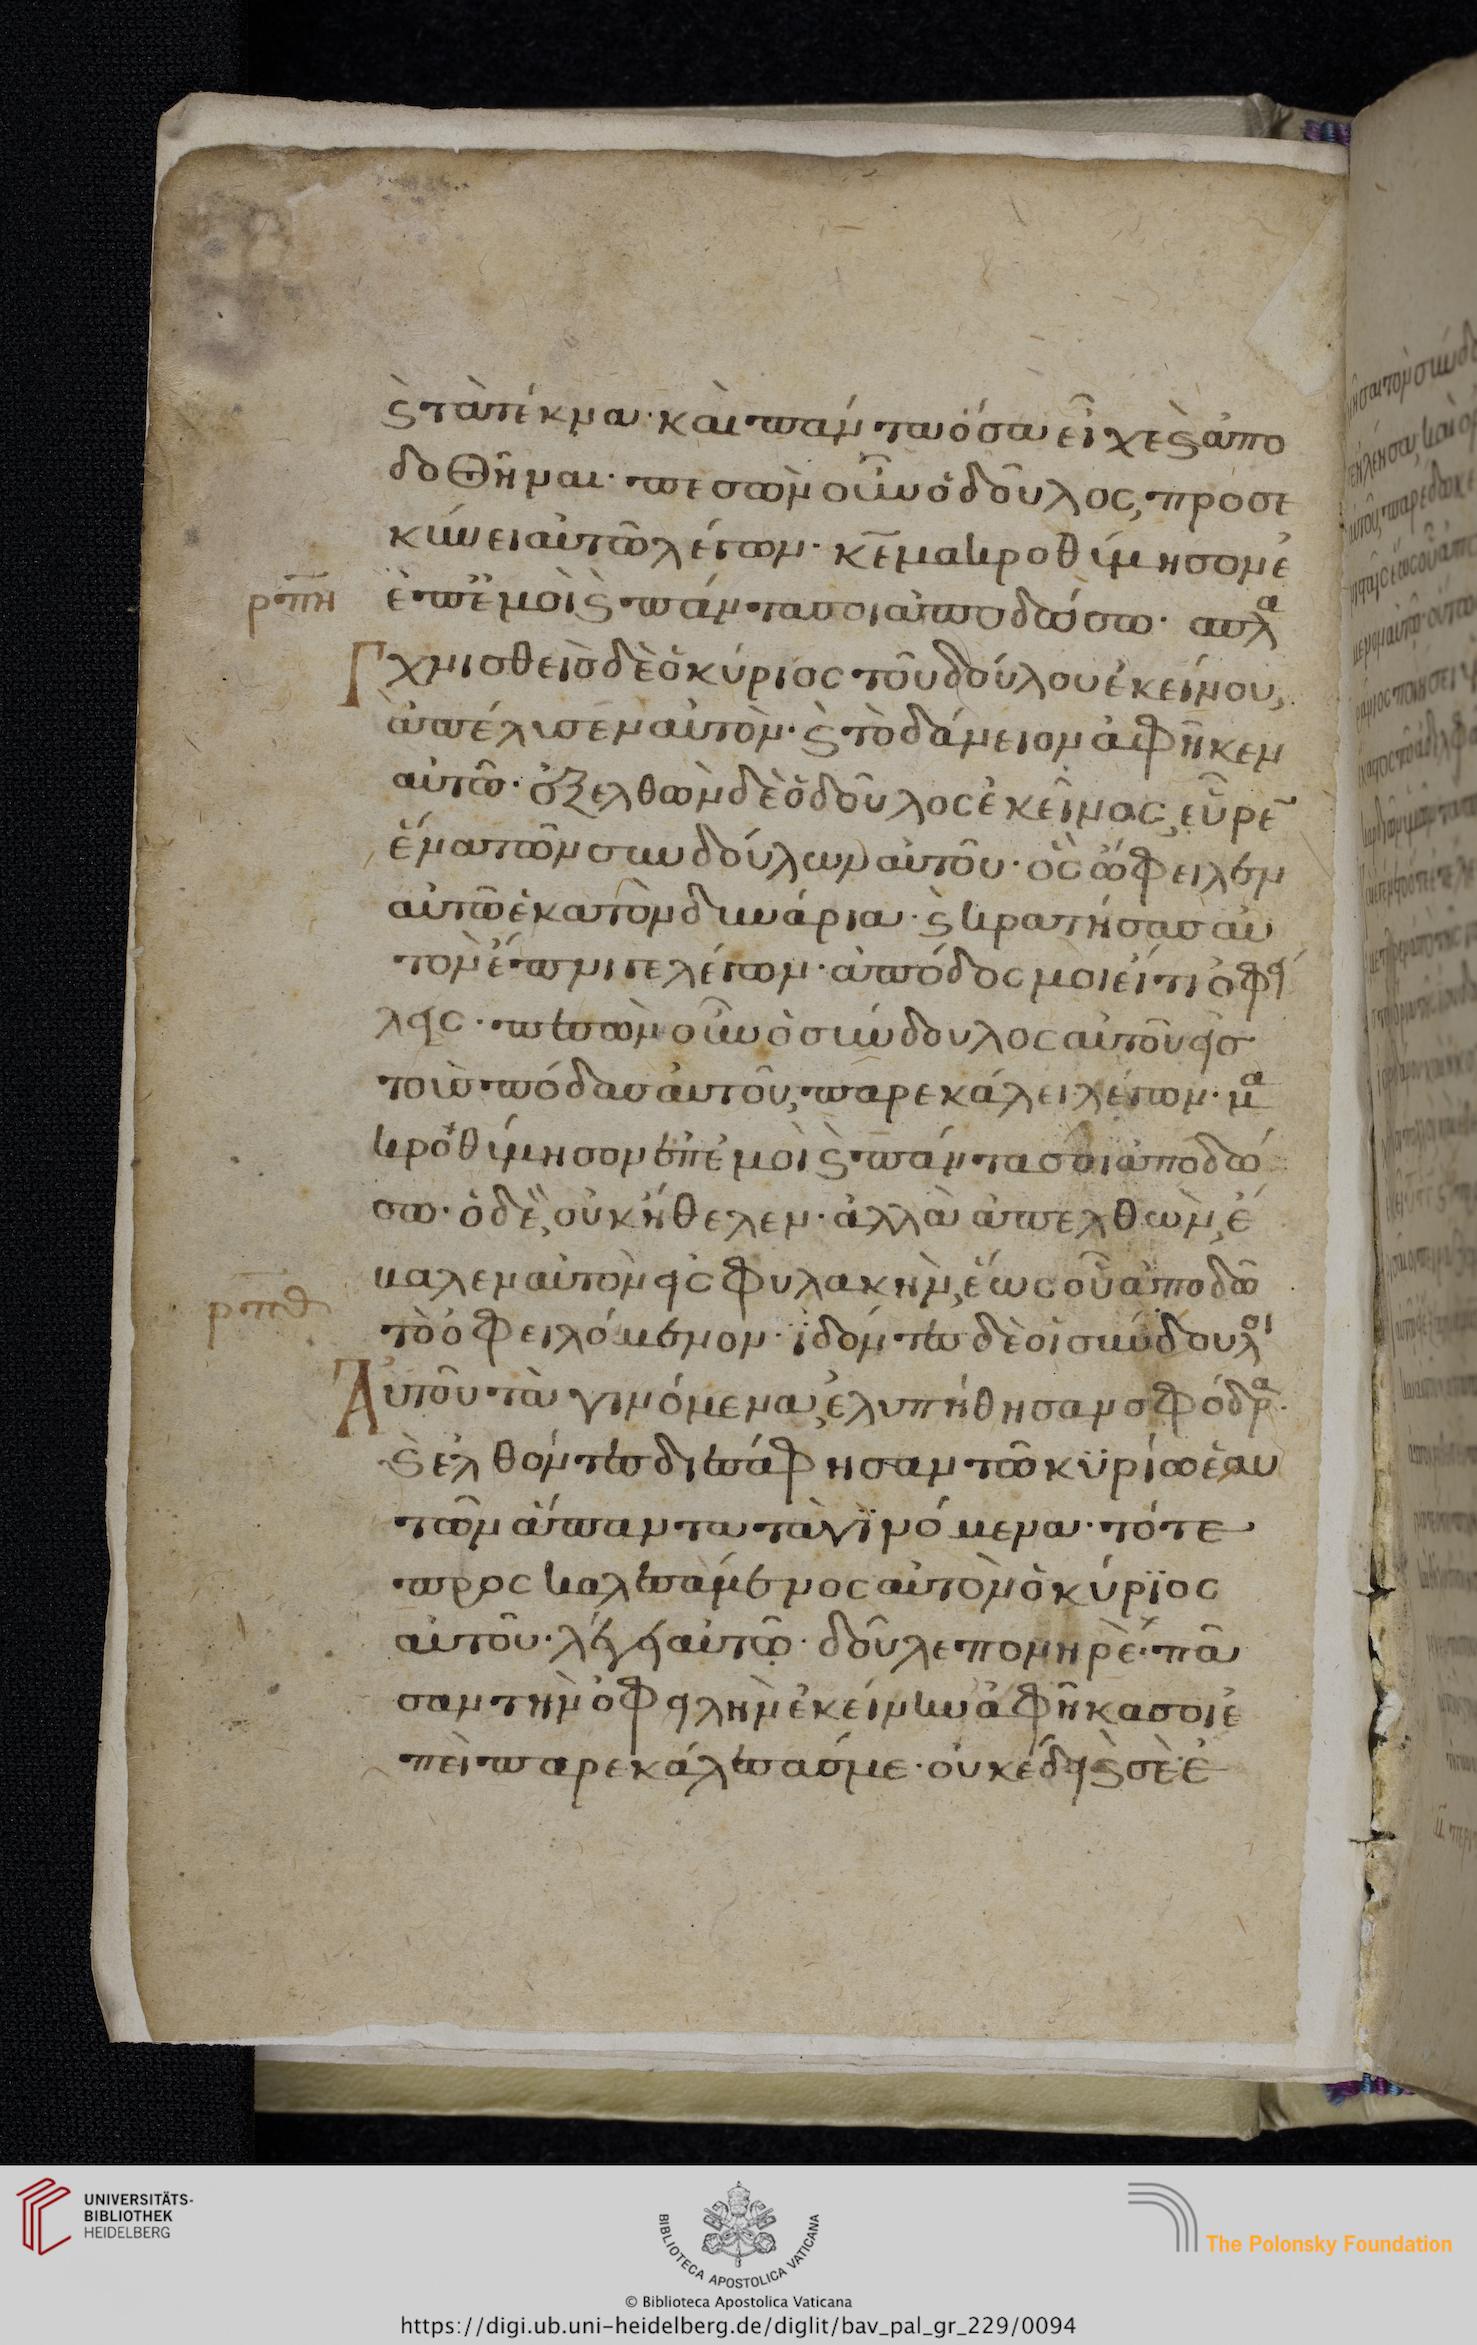 ϛ τὰ τέκνα· καὶ πάντα ὅσα εἶχε ϛ ἀπο
δοθῆναι· πεσὼν οὖν ὁ δοῦλος, προσε
κύνει αὐτῶ λέγων· κε̅ μακροθύμησον ἐ
ρπη
ἐπ' ἐμοὶ ϛ πάντα σοι ἀποδώσω· σπλα
γχνισθεὶς δὲ ὁ κύριος τοῦ δούλου ἐκείνου,
ἀπέλυσεν αὐτὸν· ϛ τὸ δάνειον ἀφῆκεν
αὐτῶ· ἐξελθὼν δὲ ὁ δοῦλος ἐκεῖνος, εὗρε̅
ἕνα τῶν συνδούλων αὐτοῦ· ὃς ὤφειλεν
αὐτῶ ἑκατὸν δηνάρια· ϛ κρατήσας αυ
τον ἔπνιγε λέγων· ἀπόδος μοι εἴ τι ὀφεί
λεις· πεσὼν οὖν ὁ σύνδουλος αὐτοῦ εἰς
τοὺς πόδας αὐτοῦ, παρεκάλει λέγων· μα
κροθύμησον ἐπ' ἐμοὶ ϛ πάντα σοι ἀποδώ
σω· ὁ δὲ, οὐκ ἤθελεν· ἀλλὰ ἀπελθὼν, ἔ
βαλεν αὐτὸν εἰς φυλακὴν, ἕως οὗ ἀποδῶ
ρπθ
τὸ ὀφειλόμενον· ἰδόντες δὲ οἱ σύνδουλοι
Αὐτοῦ τὰ γινόμενα, ἐλυπήθησαν σφόδρα·
ϛ ἐλθόντες διεσάφησαν τῶ κϋρίω ἑαυ
τῶν ἅπαντα τὰ γϊνόμενα· τότε
προσκαλεσάμενος αὐτὸν ὁ κύρϊος
αὐτοῦ· λέγει αὐτῶ· δοῦλε πονηρὲ· πᾶ
σαν τὴν ὀφειλὴν ἐκείνην ἀφῆκα σοι ἐ
πεὶ παρεκάλεσάς με· οὐκ ἔδει ϛ σὲ ἐ
UNIVERSITÄTS-
BIBLIOTHEK
HEIDELBERG
BIBLIOTECA APOSTOLICA VATICANA
The Polonsky Foundation
© Biblioteca Apostolica Vaticana
https://digi.ub.uni-heidelberg.de/diglit/bav_pal_gr_229/0094